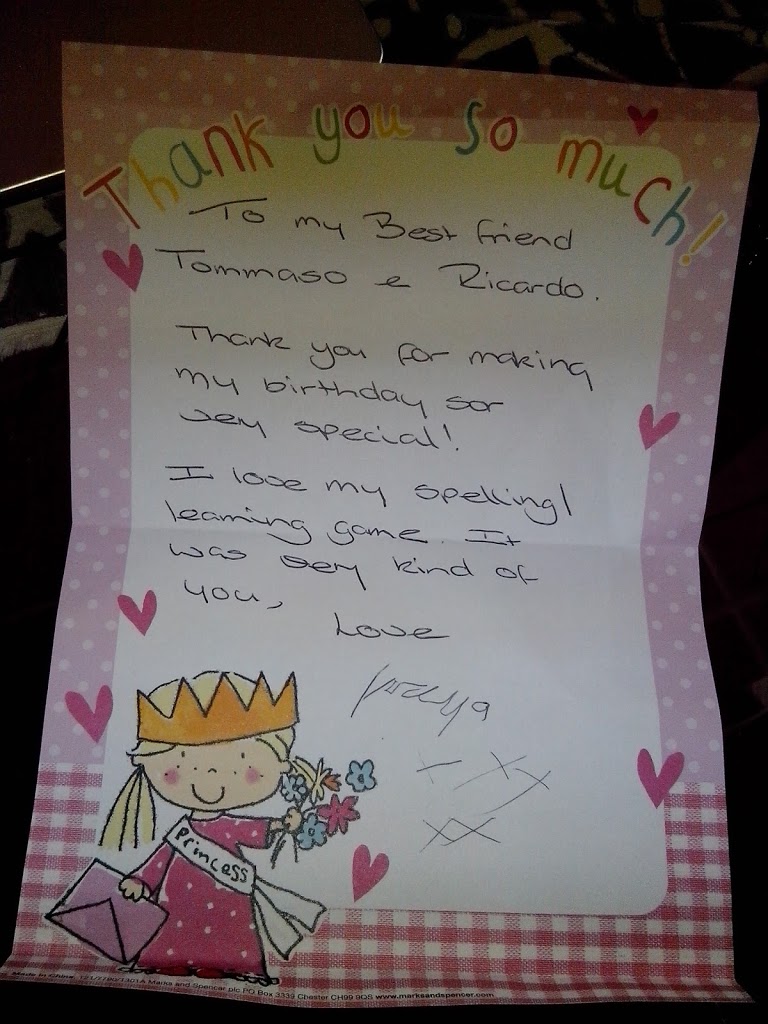 Thank you so much!
To my Best friend
Tommaso e Ricardo.
Thank you for making
my birthday sor
very special!
I love my spelling/
learning game. It
was very kind of
you,
Love
x xx
xx
Princess
Made in China. Marks and Spencer plc PO Box 3339 Chester CH99 9QS www.marksandspencer.com